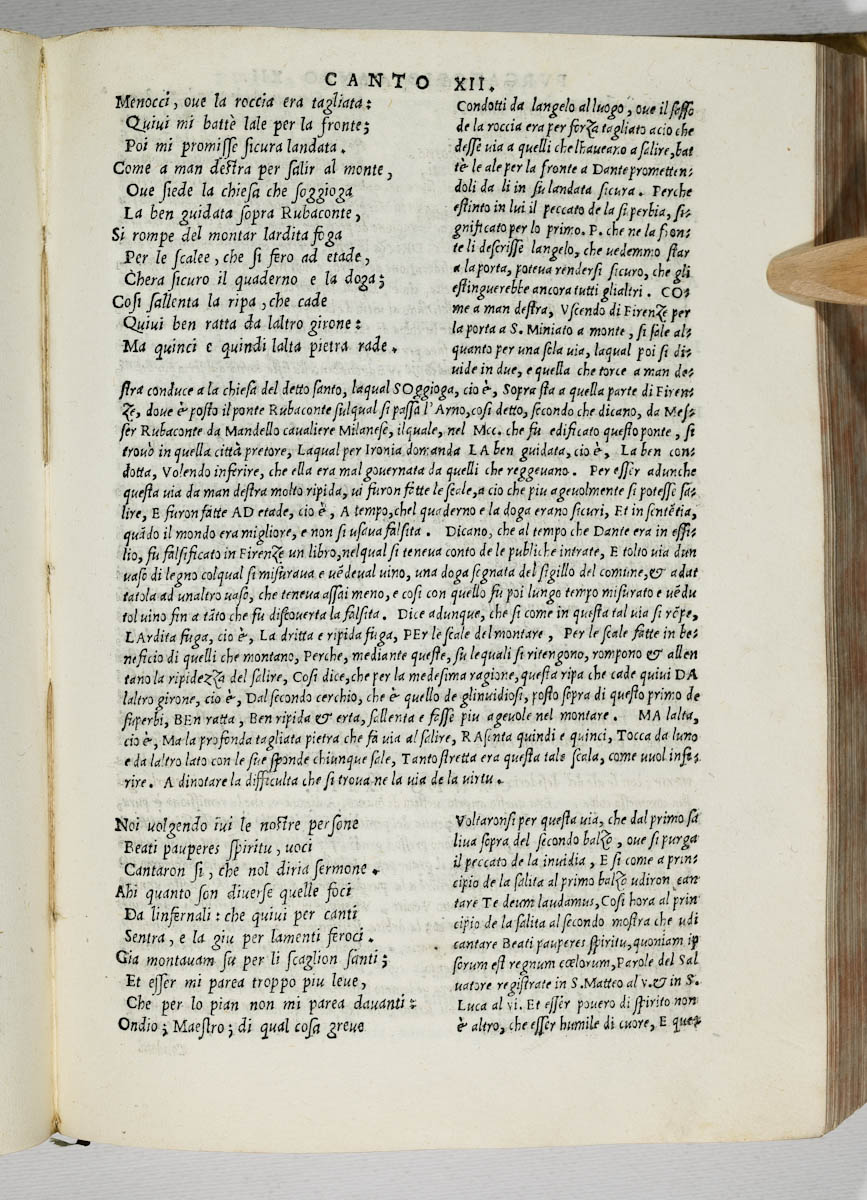 CANTO XII.
Menocci, oue la roccia era tagliata:
Quiui mi battè lale per la fronte;
Poi mi promisse sicura landata.
Come a man destra per salir al monte,
Oue siede la chiesa che soggioga
La ben guidata sopra Rubaconte,
Si rompe del montar lardita foga
Per le scalee, che si fero ad etade,
Chera sicuro il quaderno e la doga;
Cosi sallenta la ripa, che cade
Quiui ben ratta da laltro girone:
Ma quinci e quindi lalta pietra rade.
Condotti da langelo al luogo, oue il sesso
de la roccia era per forza tagliato acio che
desse uia a quelli che lhaueano a salire, bat
tè le ale per la fronte a Dante prometten-
doli da li in su landata sicura. Perche
estinto in lui il peccato de la superbia, si-
gnificato per lo primo. P. che ne la fron-
te li descrisse langelo, che uedemmo star
a la porta, poteua rendersi sicuro, che gli
estinguerebbe ancora tutti glialtri. CO-
me a man destra, Vscendo di Firenze per
la porta a S. Miniato a monte, si sale al-
quanto per una sola uia, laqual poi si di-
uide in due, e quella che torce a man de-
stra conduce a la chiesa del detto santo, laqual SOggioga, cio è, Sopra sta a quella parte di Firen-
ze, doue è posto il ponte Rubaconte sulqual si passa l'Arno, cosi detto, secondo che dicano, da Mes-
ser Rubaconte da Mandello caualiere Milanese, ilquale, nel Mcc. che fu edificato questo ponte, si
trouò in quella città pretore, Laqual per Ironia domanda LA ben guidata, cio è, La ben con-
dotta, Volendo inferire, che ella era mal gouernata da quelli che reggeuano. Per esser adunche
questa uia da man destra molto ripida, ui furon fatte le scale, a cio che piu ageuolmente si potesse sa-
lire, E furon fatte AD etade, cio è, A tempo, chel quaderno e la doga erano sicuri, Et in sentẽtia,
quãdo il mondo era migliore, e non si usaua falsita. Dicano, che al tempo che Dante era in essi-
lio, fu falsificato in Firenze un libro, nelqual si teneua conto de le publiche intrate, E tolto uia dun
uaso di legno colqual si misuraua e uẽdeual uino, una doga segnata del sigillo del comune, & adat
tatola ad unaltro uaso, che teneua assai meno, e cosi con quello fu poi lungo tempo misurato e uẽdu
tol uino fin a tãto che fu discouerta la falsita. Dice adunque, che si come in questa tal uia si rõpe,
LArdita fuga, cio è, La dritta e ripida fuga, PEr le scale del montare, Per le scale fatte in be-
neficio di quelli che montano, Perche, mediante queste, su lequali si ritengono, rompono & allen
tano la ripidezza del salire, Cosi dice, che per la medesima ragione, questa ripa che cade quiui DA
laltro girone, cio è, Dal secondo cerchio, che è quello de glinuidiosi, posto sopra di questo primo de
superbi, BEn ratta, Ben ripida & erta, sallenta e fesse piu ageuole nel montare. MA lalta,
cio è, Ma la profonda tagliata pietra che fà uia al salire, RAsenta quindi e quinci, Tocca da luno
e da laltro lato con le sue sponde chiunque sale, Tanto stretta era questa tale scala, come uuol infe-
rire. A dinotare la difficulta che si troua ne la uia de la uirtu.
Noi uolgendo iui le nostre persone
Beati pauperes spiritu, uoci
Cantaron si, che nol diria sermone.
Ahi quanto son diuerse quelle foci
Da linfernali: che quiui per canti
Sentra, e la giu per lamenti feroci.
Gia montauam su per li scaglion santi;
Et esser mi parea troppo piu leue,
Che per lo pian non mi parea dauanti:
Ondio; Maestro; di qual cosa greue
Voltaronsi per questa uia, che dal primo sa
liua sopra del secondo balzo, oue si purga
il peccato de la inuidia, E si come a prin-
cipio de la salita al primo balzo udiron can
tare Te deum laudamus, Cosi hora al prin
cipio de la salita al secondo mostra che udi
cantare Beati pauperes spiritu, quoniam ip
sorum est regnum cœlorum, Parole del Sal
uatore registrate in S. Matteo al v. & in S.
Luca al vi. Et esser pouero di spirito non
è altro, che esser humile di cuore, E ques-